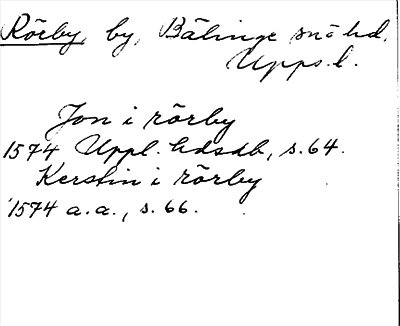 Rörby, by, Bälinge sn o hd.
Upps.l.
Jon i rörby
1574 Uppl. hdsdb, s.64.
Kerstin i rörby
1574 a.a., s.66.